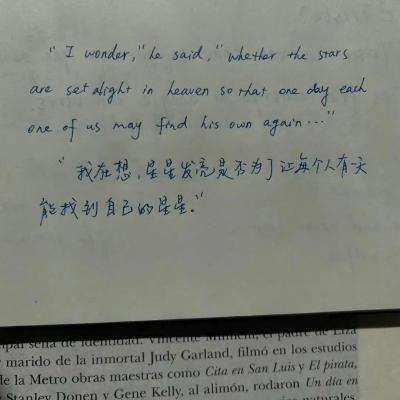 "I wonder," he said, "whether the stars
are set alight in heaven so that one day each
one of us may find his own again..."
"我在想，星星发亮是否为了让每个人有一天
能找到自己的星星。"
seña de identidad. Vincente Minnelli, el padre de Liza
marido de la inmortal Judy Garland, filmó en los estudios
de la Metro obras maestras como Cita en San Luis y El pirata,
Stanley Donen y Gene Kelly, al alimón, rodaron Un día en
naturales